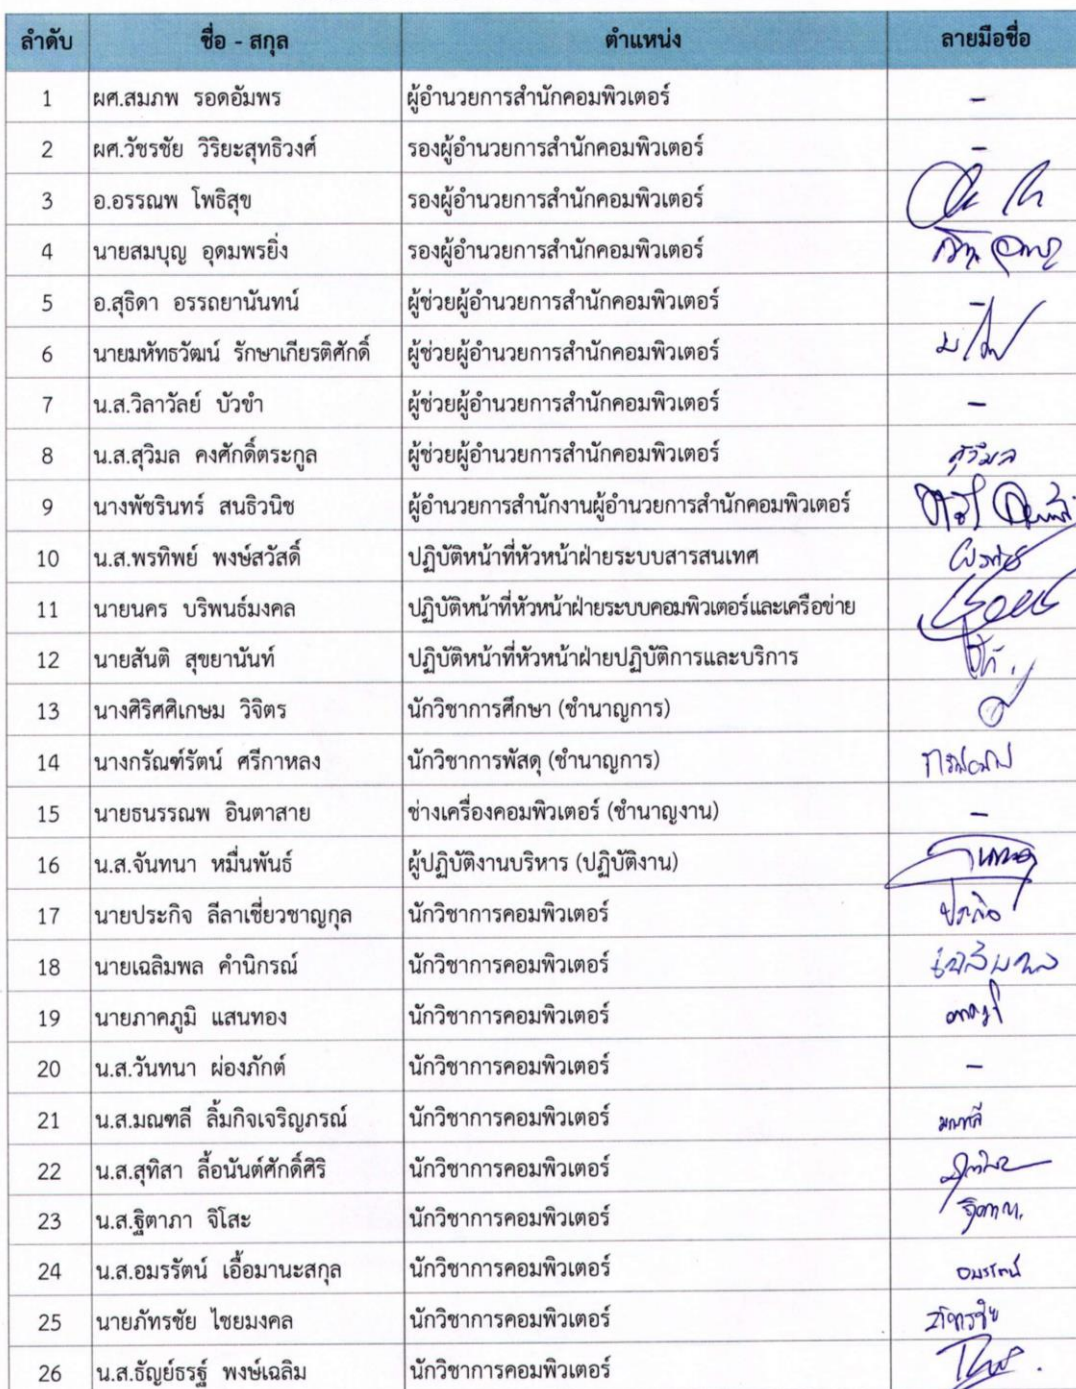 ลำดับ ชื่อ - สกุล ตำแหน่ง ลายมือชื่อ
1 ผศ.สมภพ รอดอัมพร ผู้อำนวยการสำนักคอมพิวเตอร์ -
2 ผศ.วัชรชัย วิริยะสุทธิวงศ์ รองผู้อำนวยการสำนักคอมพิวเตอร์ -
3 อ.อรรณพ โพธิสุข รองผู้อำนวยการสำนักคอมพิวเตอร์
4 นายสมบุญ อุดมพรยิ่ง รองผู้อำนวยการสำนักคอมพิวเตอร์
5 อ.สุธิดา อรรถยานันทน์ ผู้ช่วยผู้อำนวยการสำนักคอมพิวเตอร์ -
6 นายมหัทธวัฒน์ รักษาเกียรติศักดิ์ ผู้ช่วยผู้อำนวยการสำนักคอมพิวเตอร์
7 น.ส.วิลาวัลย์ บัวขำ ผู้ช่วยผู้อำนวยการสำนักคอมพิวเตอร์ -
8 น.ส.สุวิมล คงศักดิ์ตระกูล ผู้ช่วยผู้อำนวยการสำนักคอมพิวเตอร์ สุวิมล
9 นางพัชรินทร์ สนธิวนิช ผู้อำนวยการสำนักงานผู้อำนวยการสำนักคอมพิวเตอร์
10 น.ส.พรทิพย์ พงษ์สวัสดิ์ ปฏิบัติหน้าที่หัวหน้าฝ่ายระบบสารสนเทศ
11 นายนคร บริพนธ์มงคล ปฏิบัติหน้าที่หัวหน้าฝ่ายระบบคอมพิวเตอร์และเครือข่าย
12 นายสันติ สุขยานันท์ ปฏิบัติหน้าที่หัวหน้าฝ่ายปฏิบัติการและบริการ
13 นางศิริศศิเกษม วิจิตร นักวิชาการศึกษา (ชำนาญการ)
14 นางกรัณฑ์รัตน์ ศรีกาหลง นักวิชาการพัสดุ (ชำนาญการ)
15 นายธนรรณพ อินตาสาย ช่างเครื่องคอมพิวเตอร์ (ชำนาญงาน) -
16 น.ส.จันทนา หมื่นพันธ์ ผู้ปฏิบัติงานบริหาร (ปฏิบัติงาน)
17 นายประกิจ ลีลาเชี่ยวชาญกุล นักวิชาการคอมพิวเตอร์ ประกิจ
18 นายเฉลิมพล คำนิกรณ์ นักวิชาการคอมพิวเตอร์ เฉลิมพล
19 นายภาคภูมิ แสนทอง นักวิชาการคอมพิวเตอร์
20 น.ส.วันทนา ผ่องภักต์ นักวิชาการคอมพิวเตอร์ -
21 น.ส.มณฑลี ลิ้มกิจเจริญภรณ์ นักวิชาการคอมพิวเตอร์ มณฑลี
22 น.ส.สุทิสา ลื้อนันต์ศักดิ์ศิริ นักวิชาการคอมพิวเตอร์
23 น.ส.ฐิตาภา จิโสะ นักวิชาการคอมพิวเตอร์
24 น.ส.อมรรัตน์ เอื้อมานะสกุล นักวิชาการคอมพิวเตอร์ อมรรัตน์
25 นายภัทรชัย ไชยมงคล นักวิชาการคอมพิวเตอร์ ภัทรชัย
26 น.ส.ธัญย์ธรฐ์ พงษ์เฉลิม นักวิชาการคอมพิวเตอร์